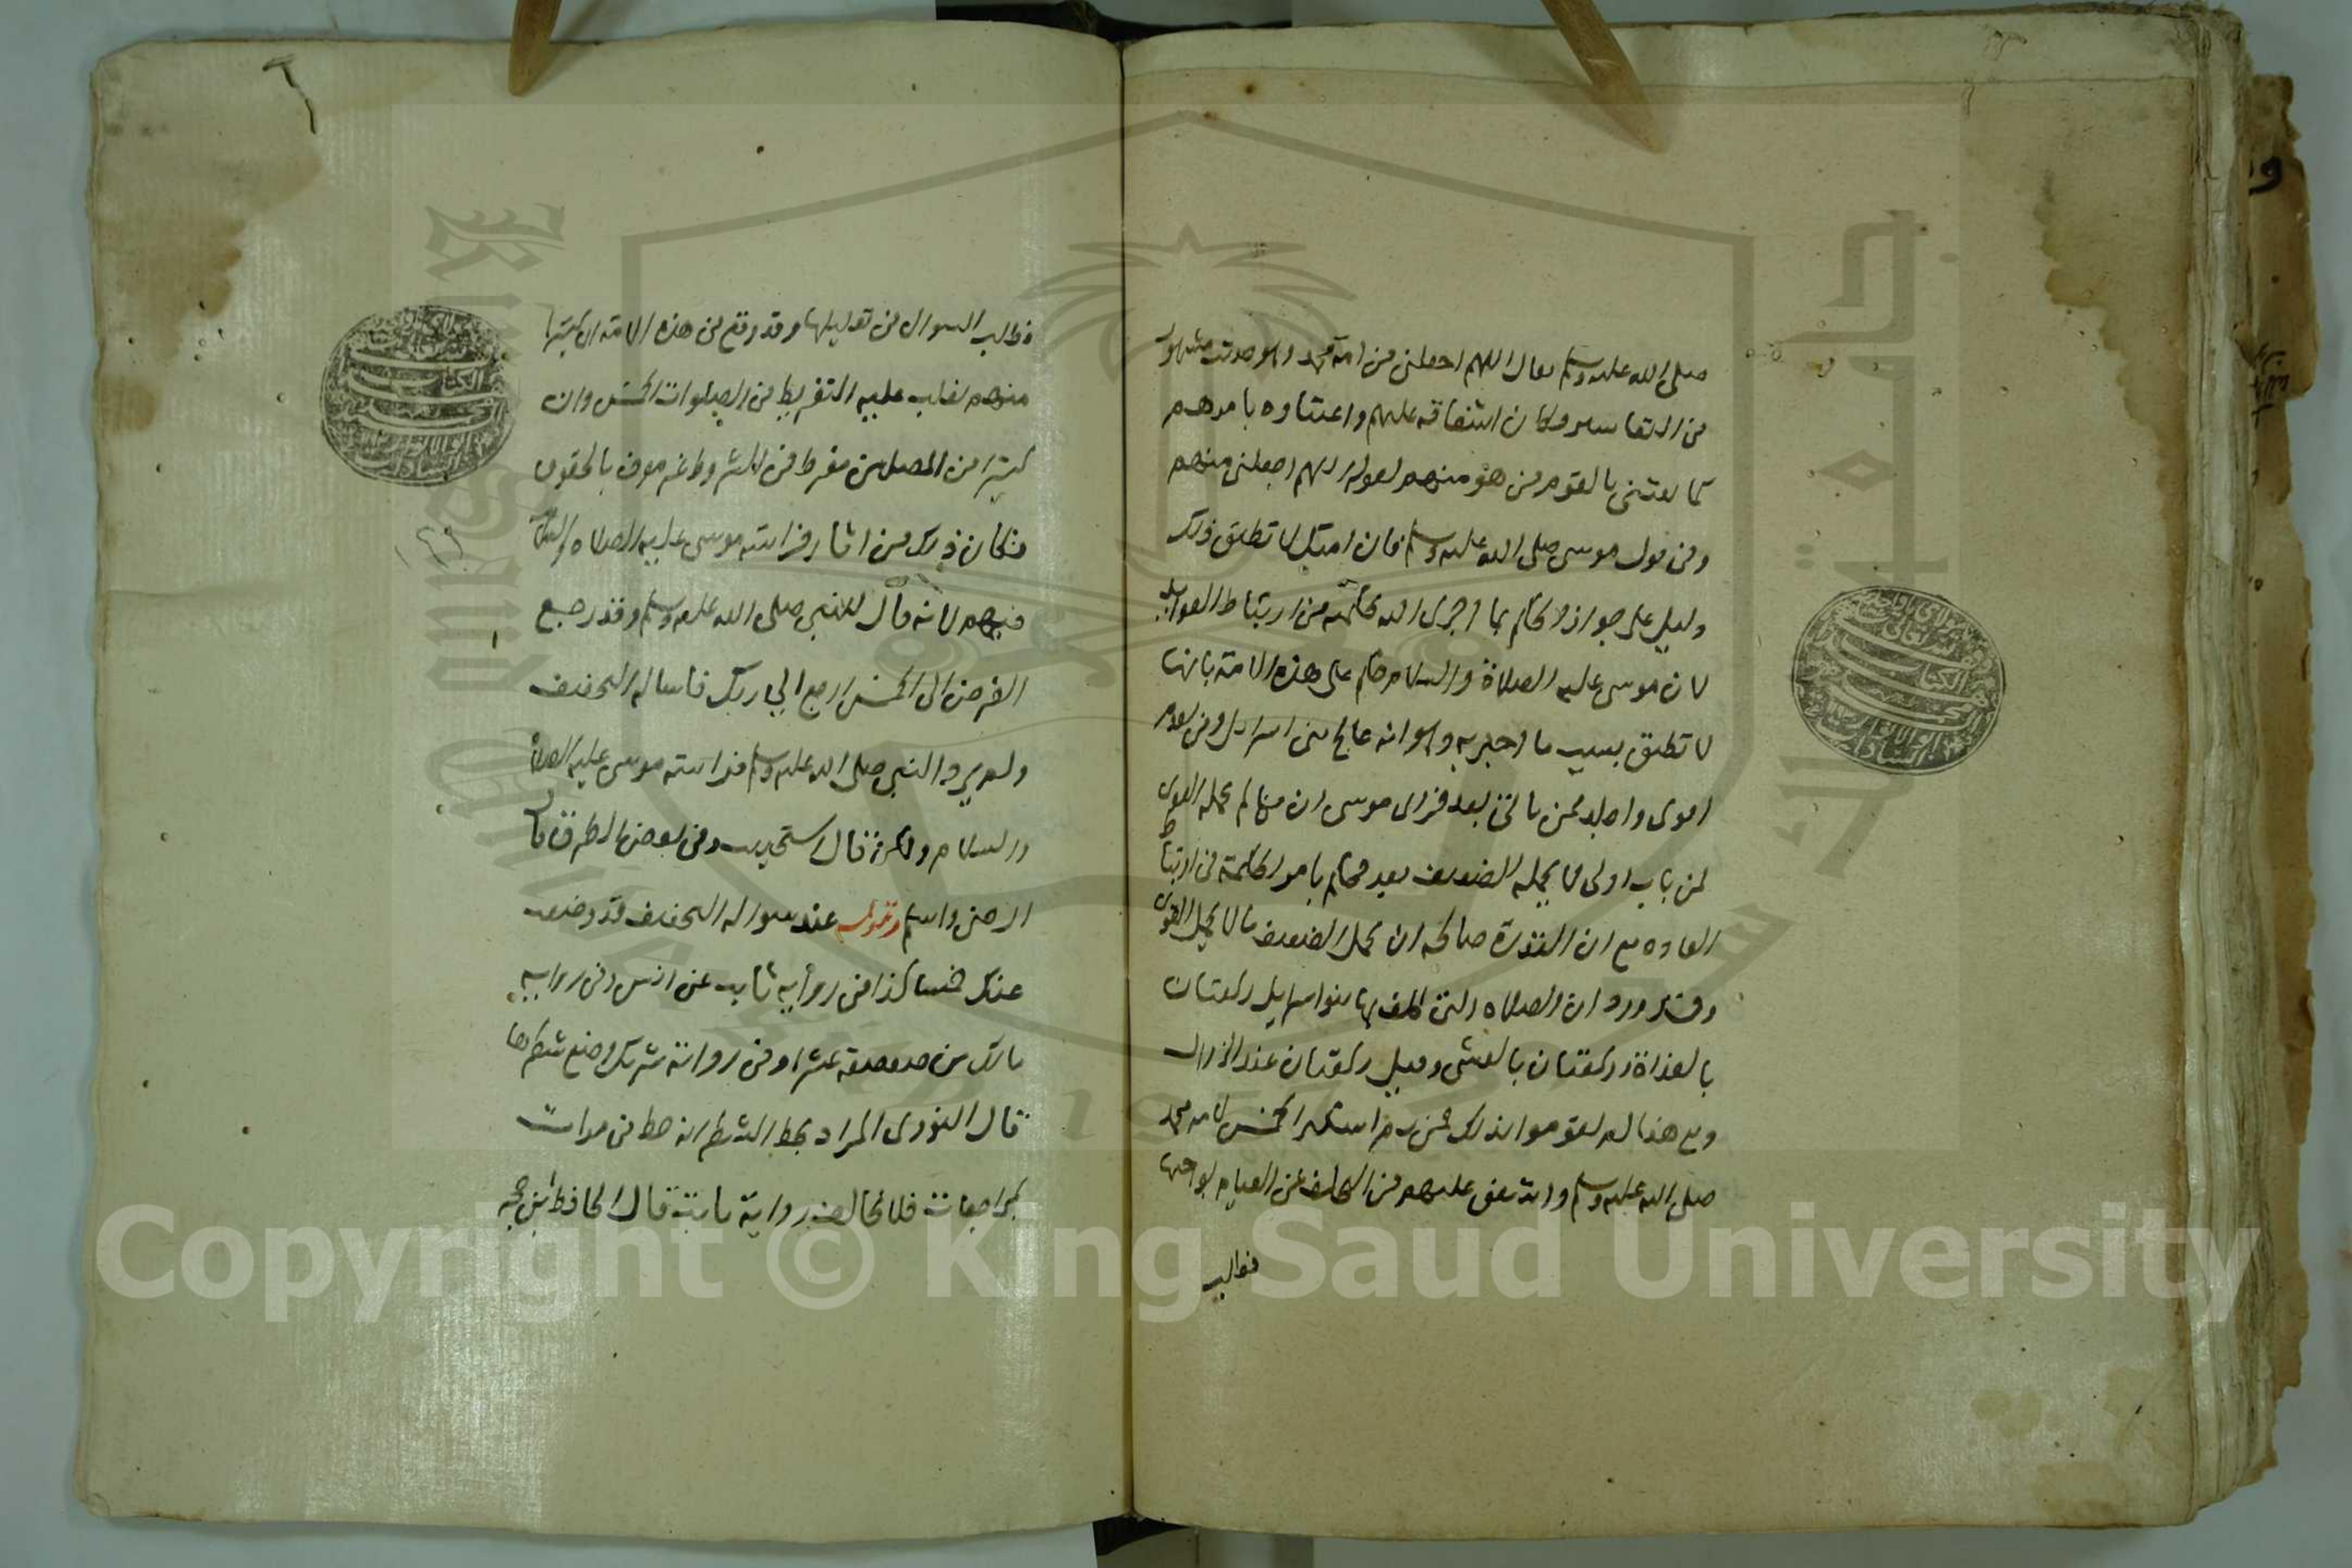 صلى الله عليه وسلم فقال اللهم اجعلني من امة محمد وهو حديث مشهور
من التفاسير وكان اشفاقه عليهم واعتناوه بامرهم
كما يعتني بالقوم من هو منهم لقوله اللهم اجعلني منهم
وفي قول موسى صلى الله عليه وسلم فان امتك لا تطيق ذلك
دليل على جواز الحكم بما اجرى الله حكمته من ارتباط العوايد
لان موسى عليه الصلاة والسلام حكم على هذه الامة بانها
لا تطيق بسبب ما اخبر به وهو انه عالج بني اسرايل ومن تقدم
اقوى واجلد ممن ياتي بعد فراى موسى ان من لم يحمله القوى
فمن باب اولى لا يحمله الضعيف بعد فحكم بامر الحكمة في ارتباط
العاده مع ان القدرة صالحه ان يحمل الضعيف ما لا يحمل القوى
وقد ورد ان الصلاه التي كلف بها بنو اسرايل ركعتان
بالغداة وركعتان بالعشى وقيل ركعتان عند الزوال
ومع هذا لم يقوموا بذلك فمن ثم استكثر الخمس لامة محمد
صلى الله عليه وسلم واشفق عليهم من التكليف عن القيام بواجبها
فطالب
فطالب السوال من تقليلها وقد وقع من هذه الامة ان كثيرا
منهم يغلب عليه التفريط من الصلوات الخمس وان
كثيرا من المصلين مفرط من الشروط غير موف بالحقوق
فكان ذلك من اثار فراسته موسى عليه الصلاه والسلام
فيهم لانه قال للنبي صلى الله عليه وسلم وقد رجع
الفرض الى الخمس ارجع الى ربك فاساله التخفيف
ولم يرد النبي صلى الله عليه وسلم فراسته موسى عليه الصلاة
والسلام ولكن قال استحييت وفي بعض الطرق قال
ارضى واسلم وقوله عند سواله التخفيف قد وضعت
عنك خمسا كذا في رواية ثابت عن انس وفي رواية
مالك بن صعصعة عشرا وفي رواية شريك وضع شطرها
قال النووى المراد بحط الشطر انه حط في مرات
بمراجعات فلا تخالف رواية ثابت قال الحافظ ابن حجر
Copyright © King Saud University